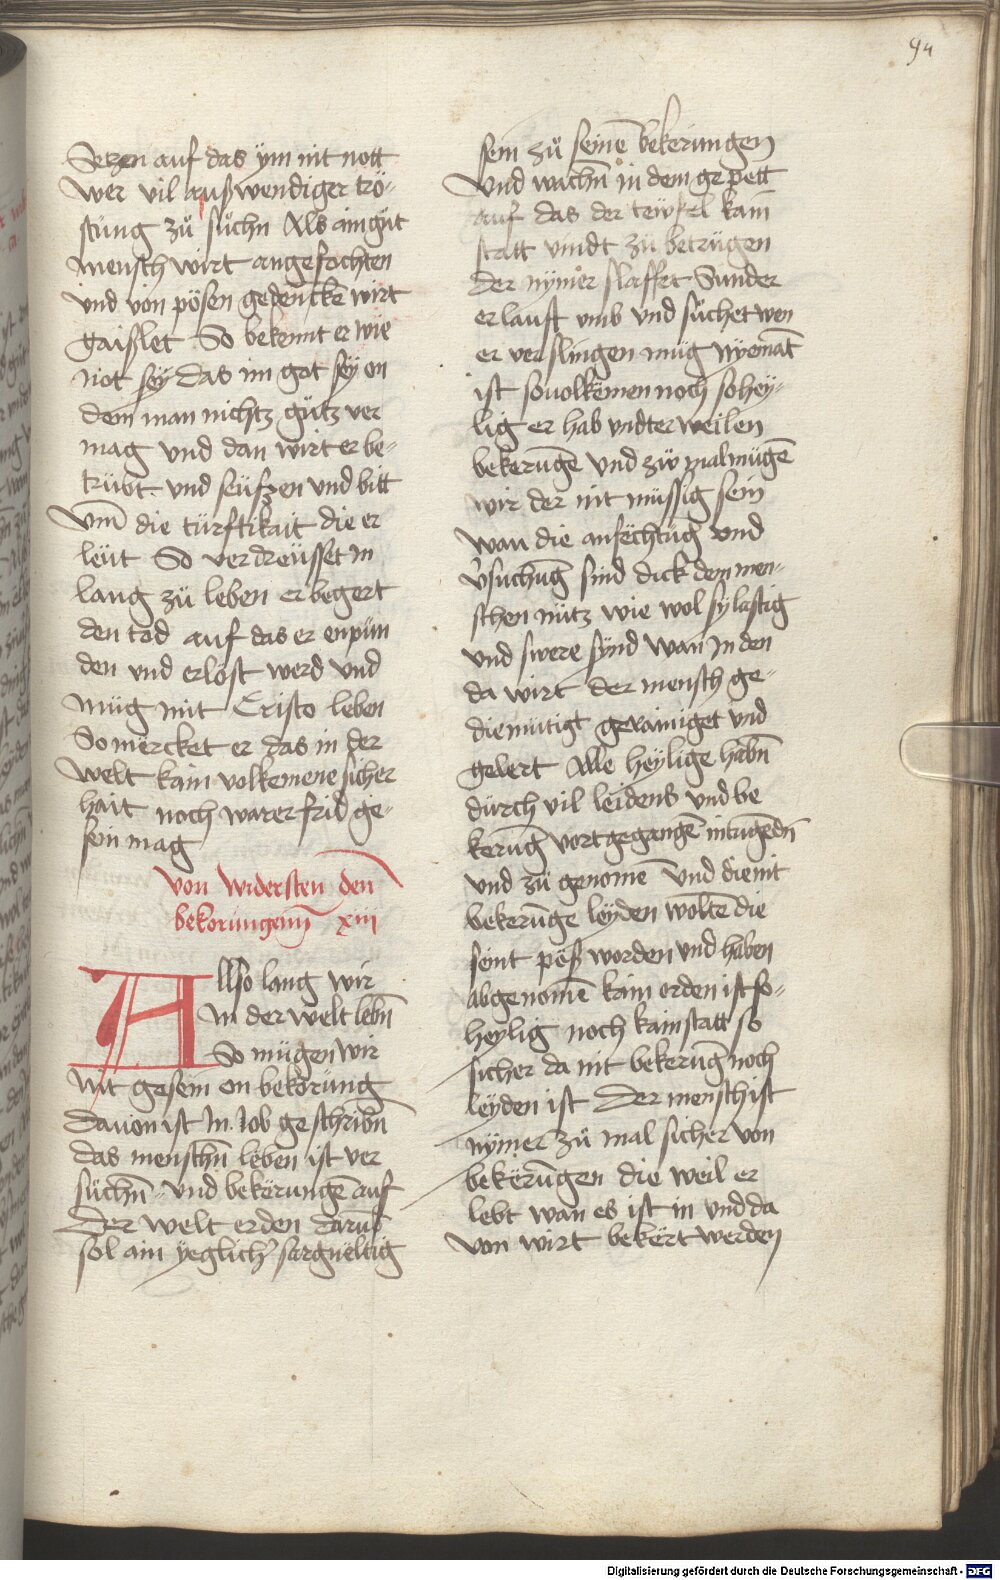 94
Setzen auf das ym nit nott
wer vil außwendiger trö-
stung zü sůchn Als ain gůt
mensch wirt angefochten
und von pösen gedencken wirt
gaislet So bekennt er wie
not sey das im got sey on
dem man nichtz gůtz ver
mag und dan wirt er be-
trübt und seüfzen und bitt
vm̄ die türftikait die er
leüt So verdreüsset in
lang zü leben er begert
den tod auf das er enpün
den und erlöst werd und
müg mit Cristo leben
So mercket er das in der
welt kain volkemene sicher
hait noch warer frid ge-
sein mag
von widersten den
bekorungenn xiii
Allso lang wir
in der welt lebn̄
So mügen wir
nit gesein on bekörung
dauon ist in Job geschribn̄
das menschn̄ leben ist ver
süchn̄ und bekörungē auf
der welt erden darub̄
sol ain yeglicher sorgueltig
sein zü seinē bekerungen
und wachn̄ in dem gepett
auf das der tewfel kain
statt vindt zü betrügen
der nymer slaffet Sunder
er lauft vmb und sůchet wen
er verslingen müg nyemāt
ist souolkemen noch so hey-
lig er hab undterweilen
bekerūgē und zw mal mügē
wir der nit müssig sein
wan die anfechtūg und
v̓suchūg sind dick dem men-
schen nütz wie wol sy lastig
und swere synd wan in den
da wirt der mensch ge-
diemütigt gerainiget und
gelert Alle heylige habn̄
dürch vil leidens und be
kerūg vort gegangē in tugēdn̄
und zü genomē und die nit
bekerūnge leyden wolte die
seint pöß worden und haben
abgenomē kain orden ist so-
heylig noch kain statt so
sicher da nit bekerūg noch
leyden ist Der mensch ist
nymer zü mal sicher von
bekerūngen die weil er
lebt wan es ist in und da
von wirt bekert werden
Digitalisierung gefördert durch die Deutsche Forschungsgemeinschaft - DFG